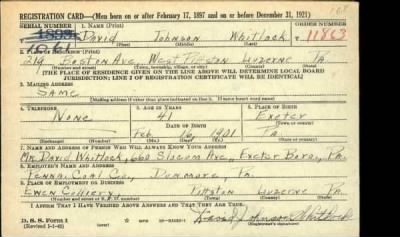 REGISTRATION CARD—(Men born on or after February 17, 1897 and on or before December 31, 1921)
SERIAL NUMBER 1. NAME (Print) ORDER NUMBER
David Johnson Whitlock 11863
(First) (Middle) (Last)
2. PLACE OF RESIDENCE (Print)
219 Boston Ave. West Pittston Luzerne Pa
(Number and street) (Town, township, village, or city) (County) (State)
[THE PLACE OF RESIDENCE GIVEN ON THE LINE ABOVE WILL DETERMINE LOCAL BOARD
JURISDICTION; LINE 2 OF REGISTRATION CERTIFICATE WILL BE IDENTICAL]
3. MAILING ADDRESS
SAME
[Mailing address if other than place indicated on line 2. If same insert word same]
4. TELEPHONE 5. AGE IN YEARS 6. PLACE OF BIRTH
None 41 Exeter
DATE OF BIRTH (Town or county)
Feb 16 1901 Pa
(Mo.) (Day) (Yr.) (State or country)
7. NAME AND ADDRESS OF PERSON WHO WILL ALWAYS KNOW YOUR ADDRESS
Mr. David Whitlock, 660 Slocum Ave., Exeter Boro., Pa.
8. EMPLOYER'S NAME AND ADDRESS
Penna. Coal Co., Dunmore, Pa.
9. PLACE OF EMPLOYMENT OR BUSINESS
Ewen Colliery, Pittston Luzerne Pa.
(Number and street or R. F. D. number) (Town) (County) (State)
I AFFIRM THAT I HAVE VERIFIED ABOVE ANSWERS AND THAT THEY ARE TRUE.
D. S. S. Form 1 David Johnson Whitlock
(Revised 1-1-42) (over) (Registrant's signature)